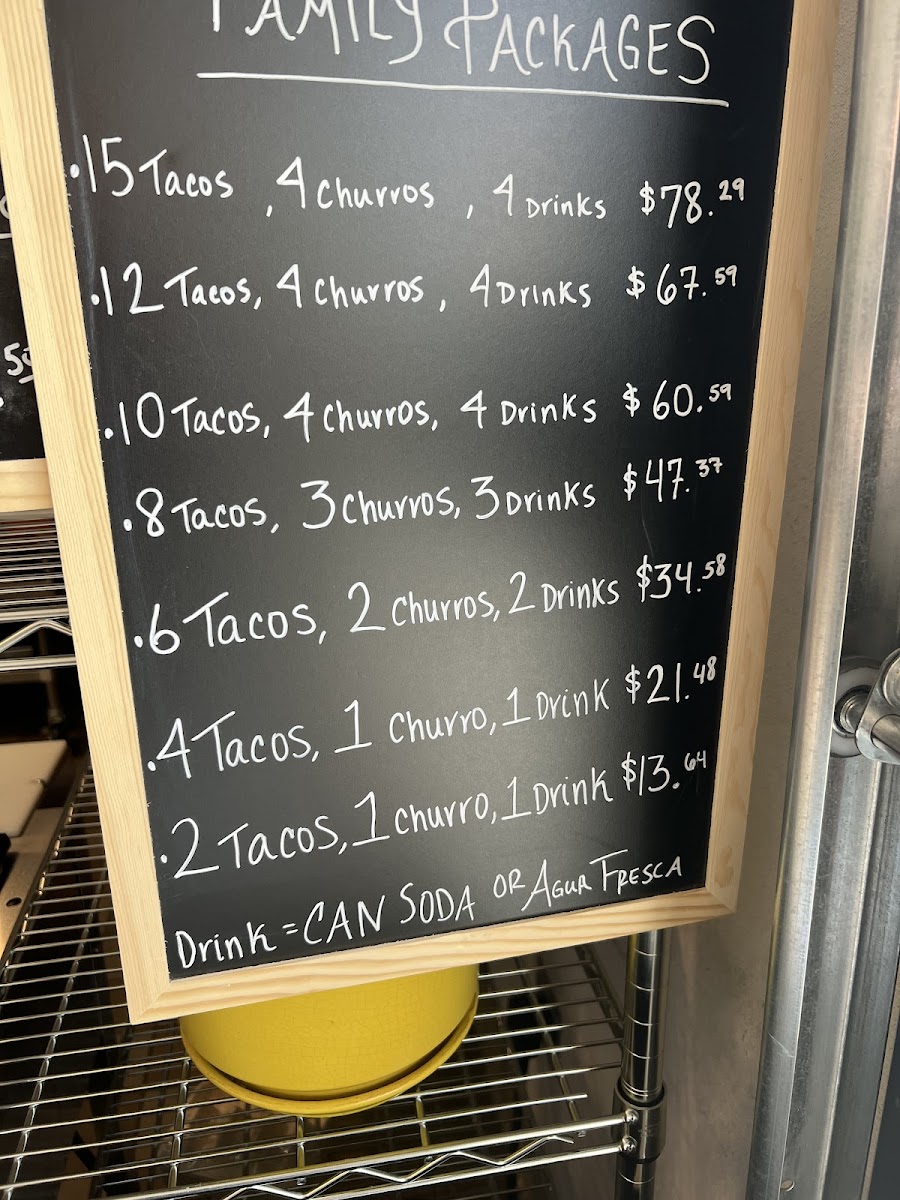 FAMILY PACKAGES
.15 Tacos, 4 Churros, 4 Drinks $78.29
.12 Tacos, 4 Churros, 4 Drinks $67.59
.10 Tacos, 4 Churros, 4 Drinks $60.59
.8 Tacos, 3 Churros, 3 Drinks $47.37
.6 Tacos, 2 Churros, 2 Drinks $34.58
.4 Tacos, 1 Churro, 1 Drink $21.48
.2 Tacos, 1 Churro, 1 Drink $13.64
Drink = CAN SODA OR AGUA FRESCA